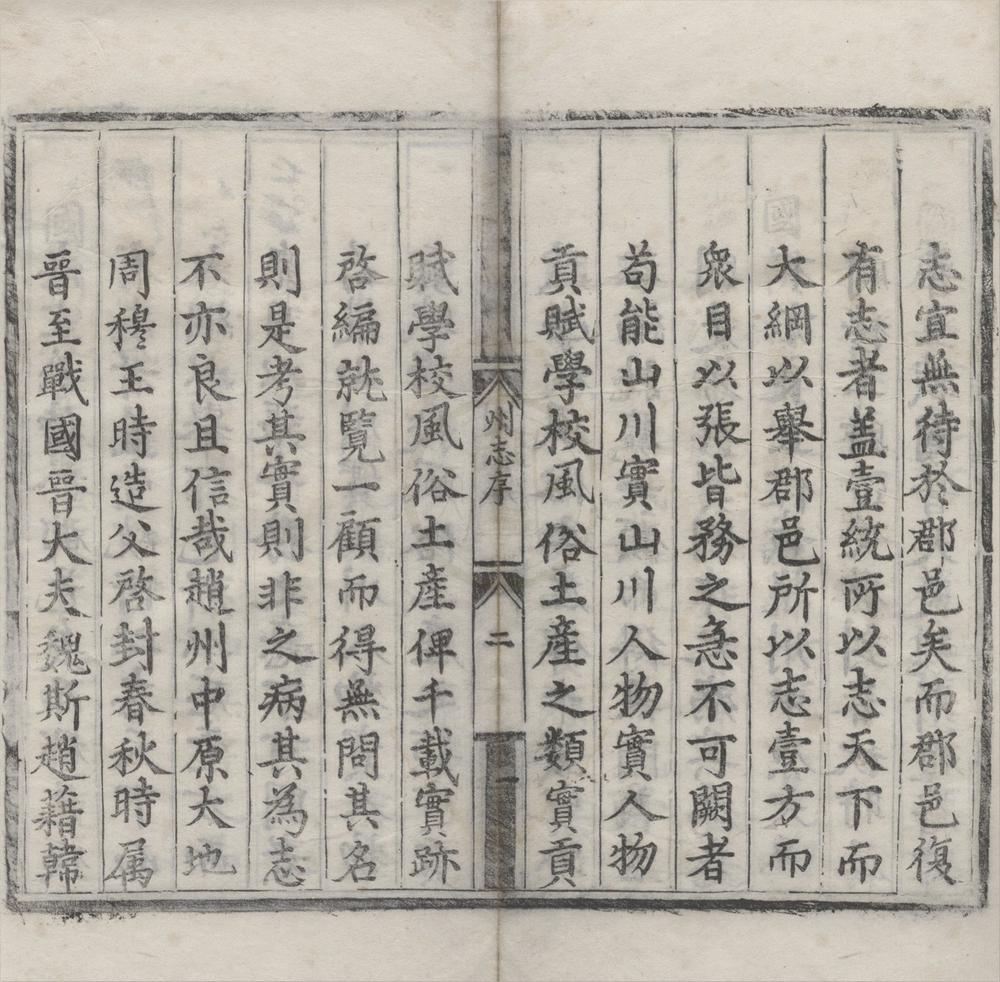 志宜無待於郡邑矣而郡邑復
有志者盖壹統所以志天下而
大綱以舉郡邑所以志壹方而
衆目以張皆務之急不可闕者
苟能山川實山川人物實人物
貢賦學校風俗土產之類實貢
州志序
二
賦學校風俗土產俾千載實跡
啓編就覽一顧而得無問其名
則是考其實則非之病其為志
不亦良且信哉趙州中原大地
周穆王時造父啓封春秋時属
晉至戰國晉大夫魏斯趙藉韓